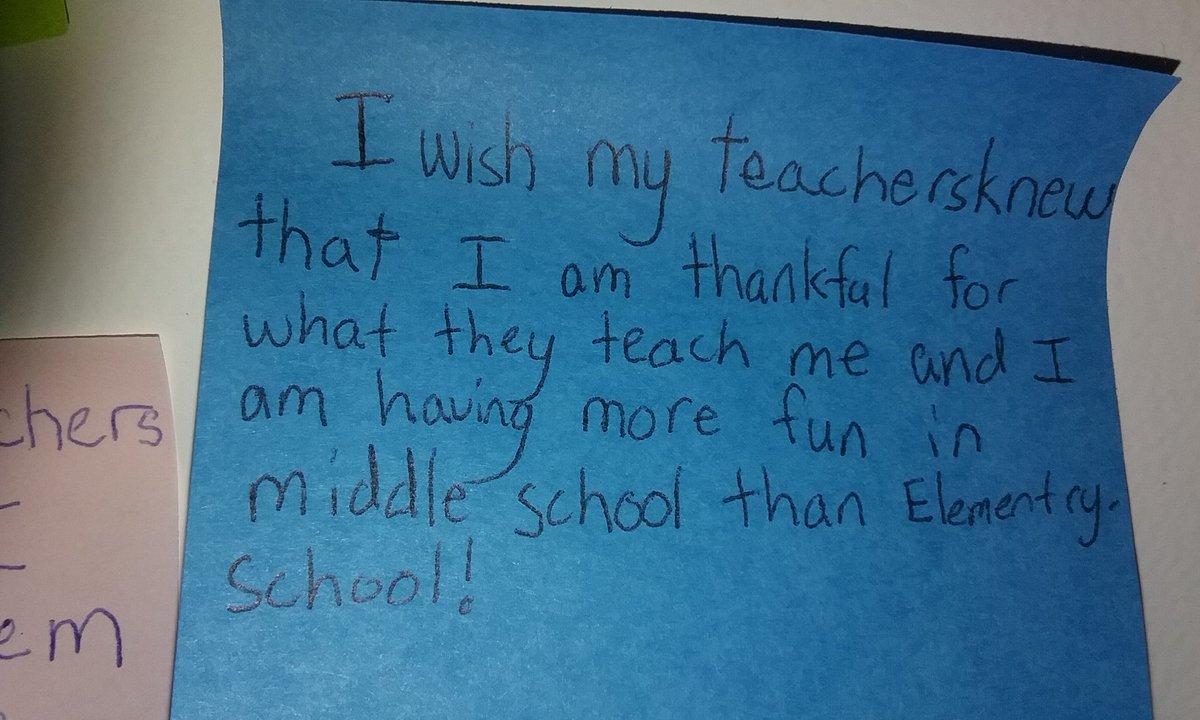 I wish my teachersknew
that I am thankful for
what they teach me and I
am having more fun in
middle school than Elementry.
school!
chers
em